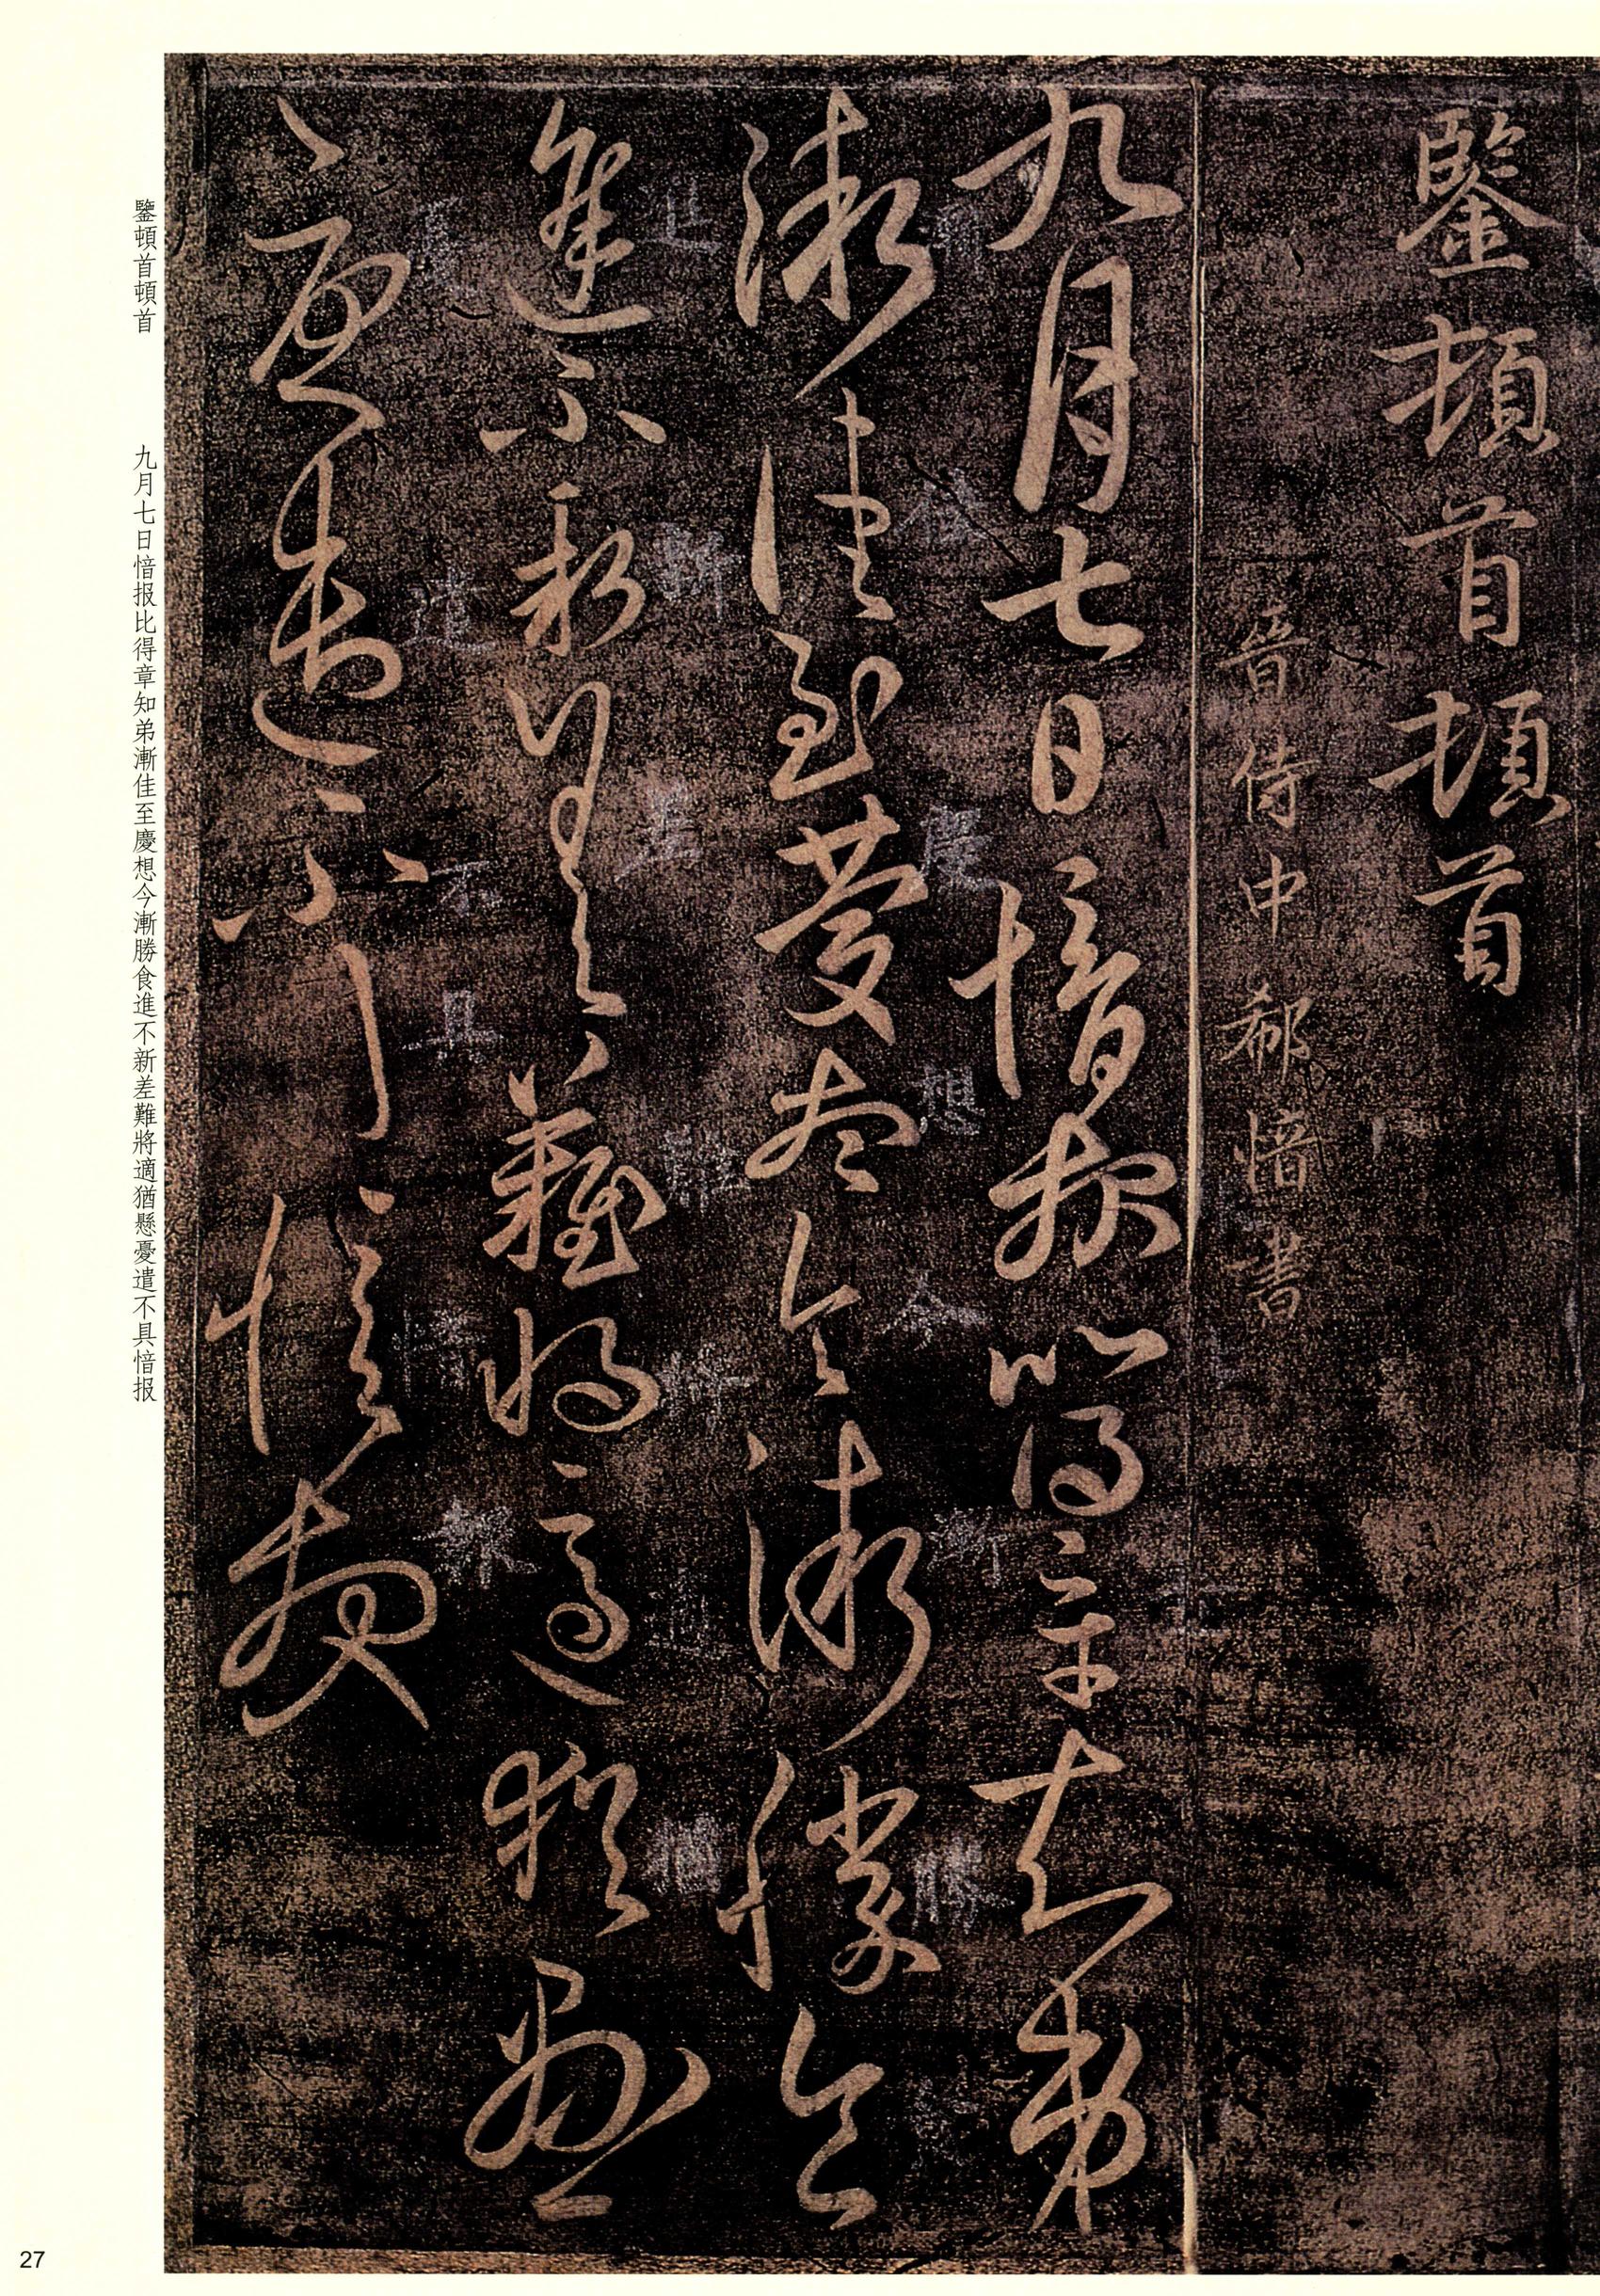 鑒頓首頓首
晉侍中郗愔書
九月七日愔报比得章知弟
漸佳至慶想今漸勝食
進不新差難將適猶懸
憂遣不具愔报
佳 慶 想 今 漸 勝
進 新 差 難 將 適 猶
憂 遣 不 具 愔 報
鑒頓首頓首
九月七日愔报比得章知弟漸佳至慶想今漸勝食進不新差難將適猶懸憂遣不具愔报
27